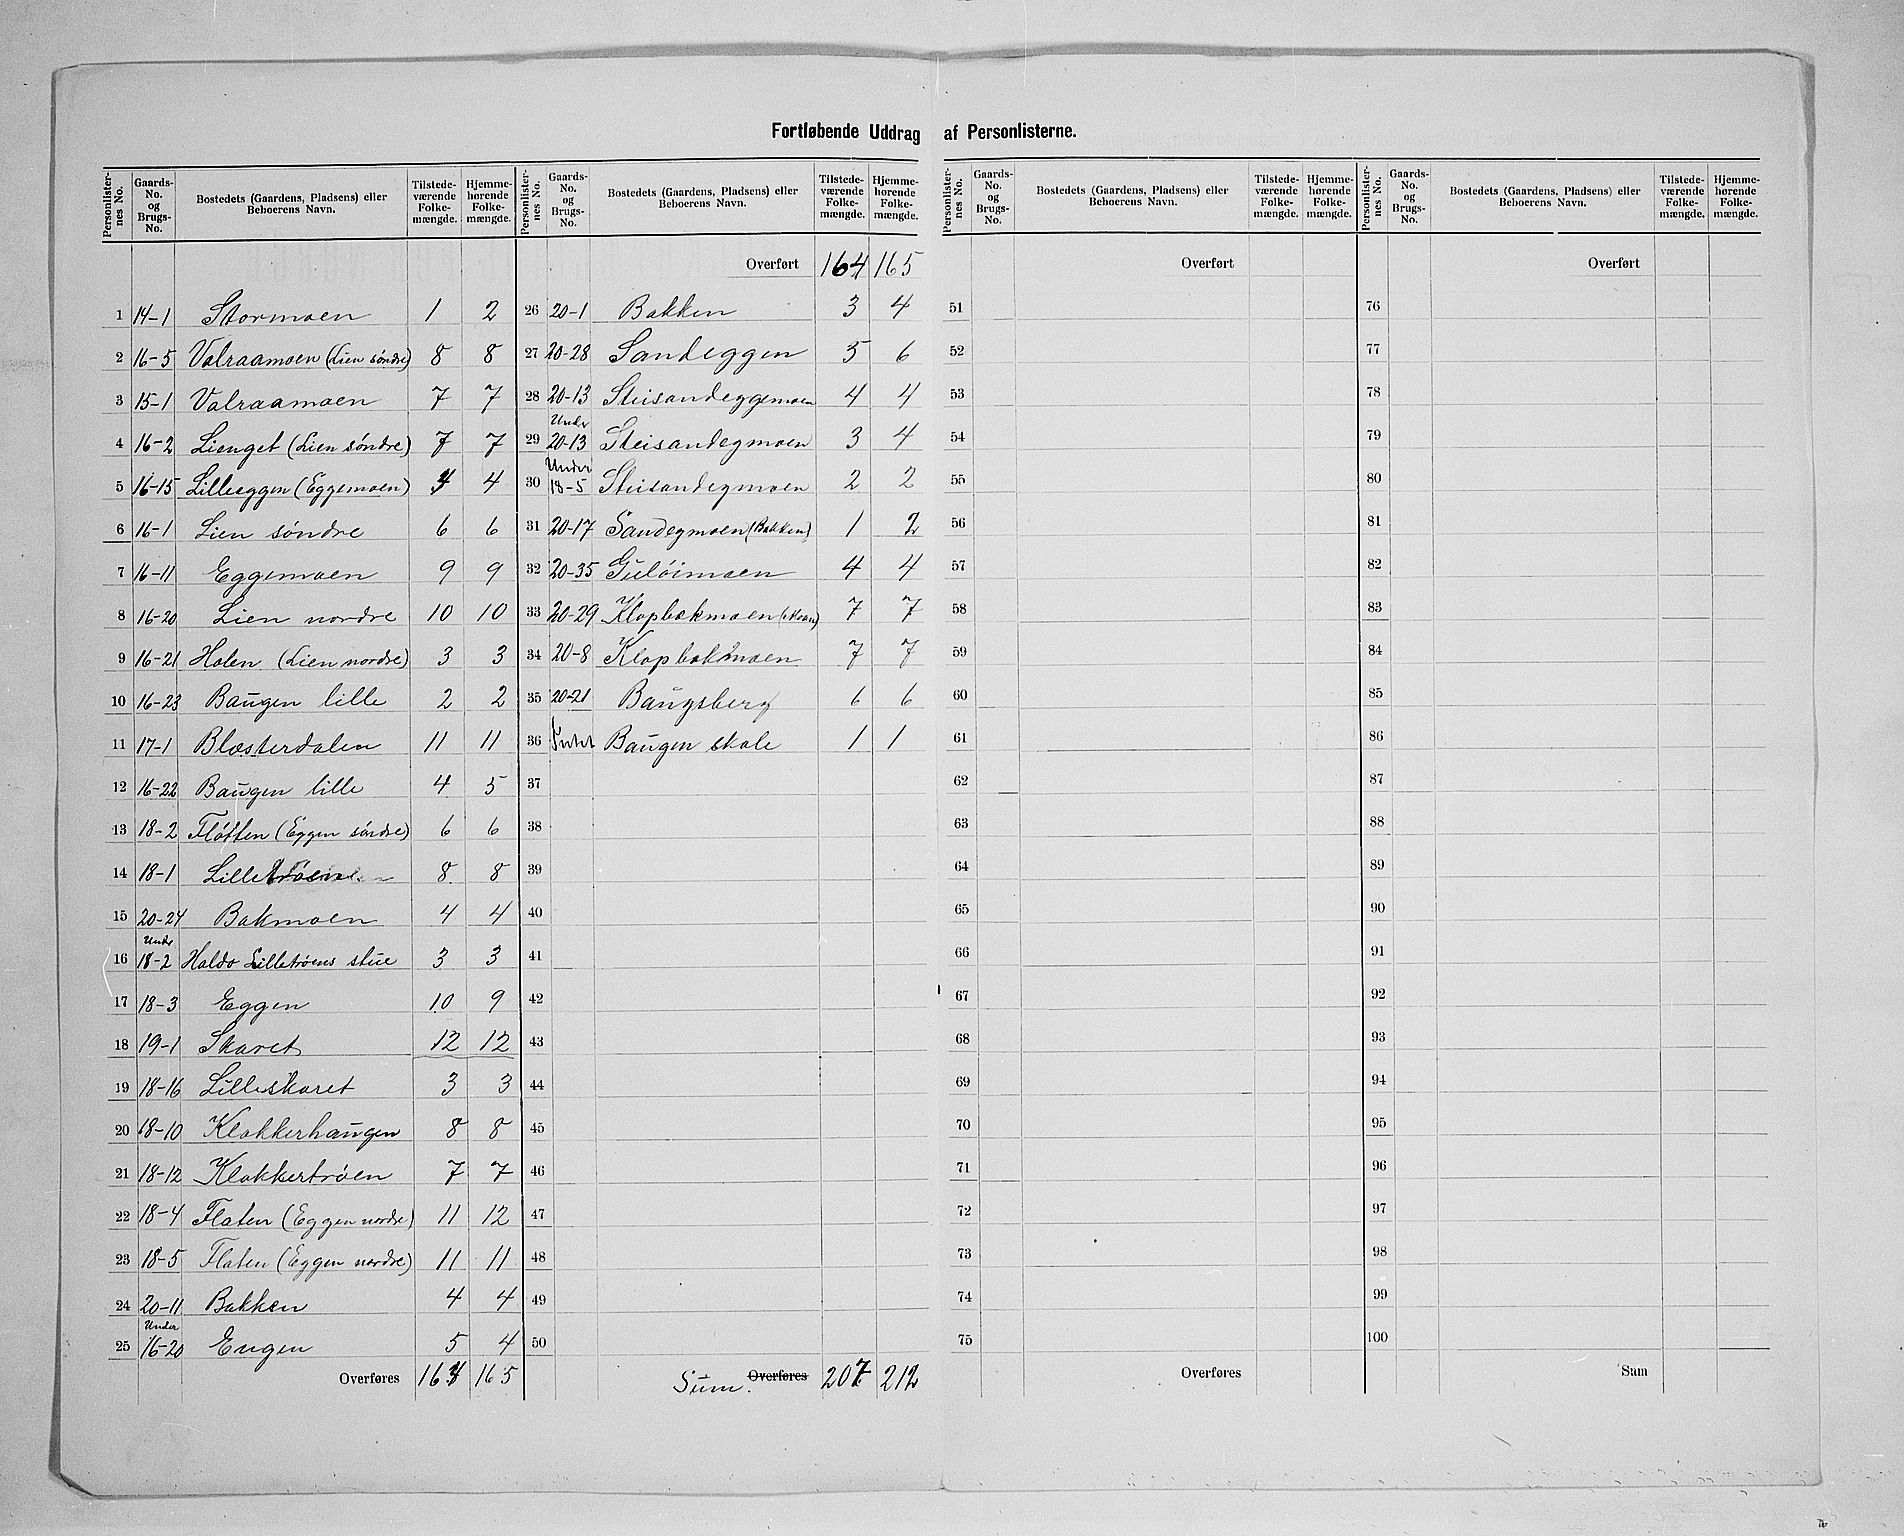 Fortløbende Uddrag af Personlisterne.
Personlisternes No. Gaards-No. og Brugs-No. Bostedets (Gaardens, Pladsens) eller Beboerens Navn. Tilstedeværende Folkemængde. Hjemmehørende Folkemængde.
1 14-1 Stormoen 1 2
2 16-5 Valraamoen (Lien søndre) 8 8
3 15-1 Valraamoen 7 7
4 16-2 Lienget (Lien søndre) 7 7
5 16-15 Lilleeggen (Eggemoen) 4 4
6 16-1 Lien søndre 6 6
7 16-11 Eggemoen 9 9
8 16-20 Lien nordre 10 10
9 16-21 Holen (Lien nordre) 3 3
10 16-23 Baugen lille 2 2
11 17-1 Blæsterdalen 11 11
12 16-22 Baugen lille 4 5
13 18-2 Fløtten (Eggen søndre) 6 6
14 18-1 Lilletrøen 8 8
15 20-24 Bakmoen 4 4
16 Under 18-2 Haldo Lilletrøens stue 3 3
17 18-3 Eggen 10 9
18 19-1 Skaret 12 12
19 18-16 Lilleskaret 3 3
20 18-10 Klokkerhaugen 8 8
21 18-12 Klokkertrøen 7 7
22 18-4 Flaten (Eggen nordre) 11 12
23 18-5 Flaten (Eggen nordre) 11 11
24 20-11 Bakken 4 4
25 Under 16-20 Engen 5 4
Overføres 164 165
Personlisternes No. Gaards-No. og Brugs-No. Bostedets (Gaardens, Pladsens) eller Beboerens Navn. Tilstedeværende Folkemængde. Hjemmehørende Folkemængde.
Overført 164 165
26 20-1 Bakken 3 4
27 20-28 Sandeggen 5 6
28 20-13 Steisandeggemoen 4 4
29 Under 20-13 Steisandegmoen 3 4
30 Under 18-5 Steisandegmoen 2 2
31 20-17 Sandegmoen (Bakken) 1 2
32 20-35 Guløimoen 4 4
33 20-29 Klopbækmoen 7 7
34 20-8 Klopbakmoen 7 7
35 20-21 Baugsberg 6 6
36 Baugen skole 1 1
37
38
39
40
41
42
43
44
45
46
47
48
49
50
Sum. Overføres 207 212
Personlisternes No. Gaards-No. og Brugs-No. Bostedets (Gaardens, Pladsens) eller Beboerens Navn. Tilstedeværende Folkemængde. Hjemmehørende Folkemængde.
Overført
51
52
53
54
55
56
57
58
59
60
61
62
63
64
65
66
67
68
69
70
71
72
73
74
75
Overføres
Personlisternes No. Gaards-No. og Brugs-No. Bostedets (Gaardens, Pladsens) eller Beboerens Navn. Tilstedeværende Folkemængde. Hjemmehørende Folkemængde.
Overført
76
77
78
79
80
81
82
83
84
85
86
87
88
89
90
91
92
93
94
95
96
97
98
99
100
Sum